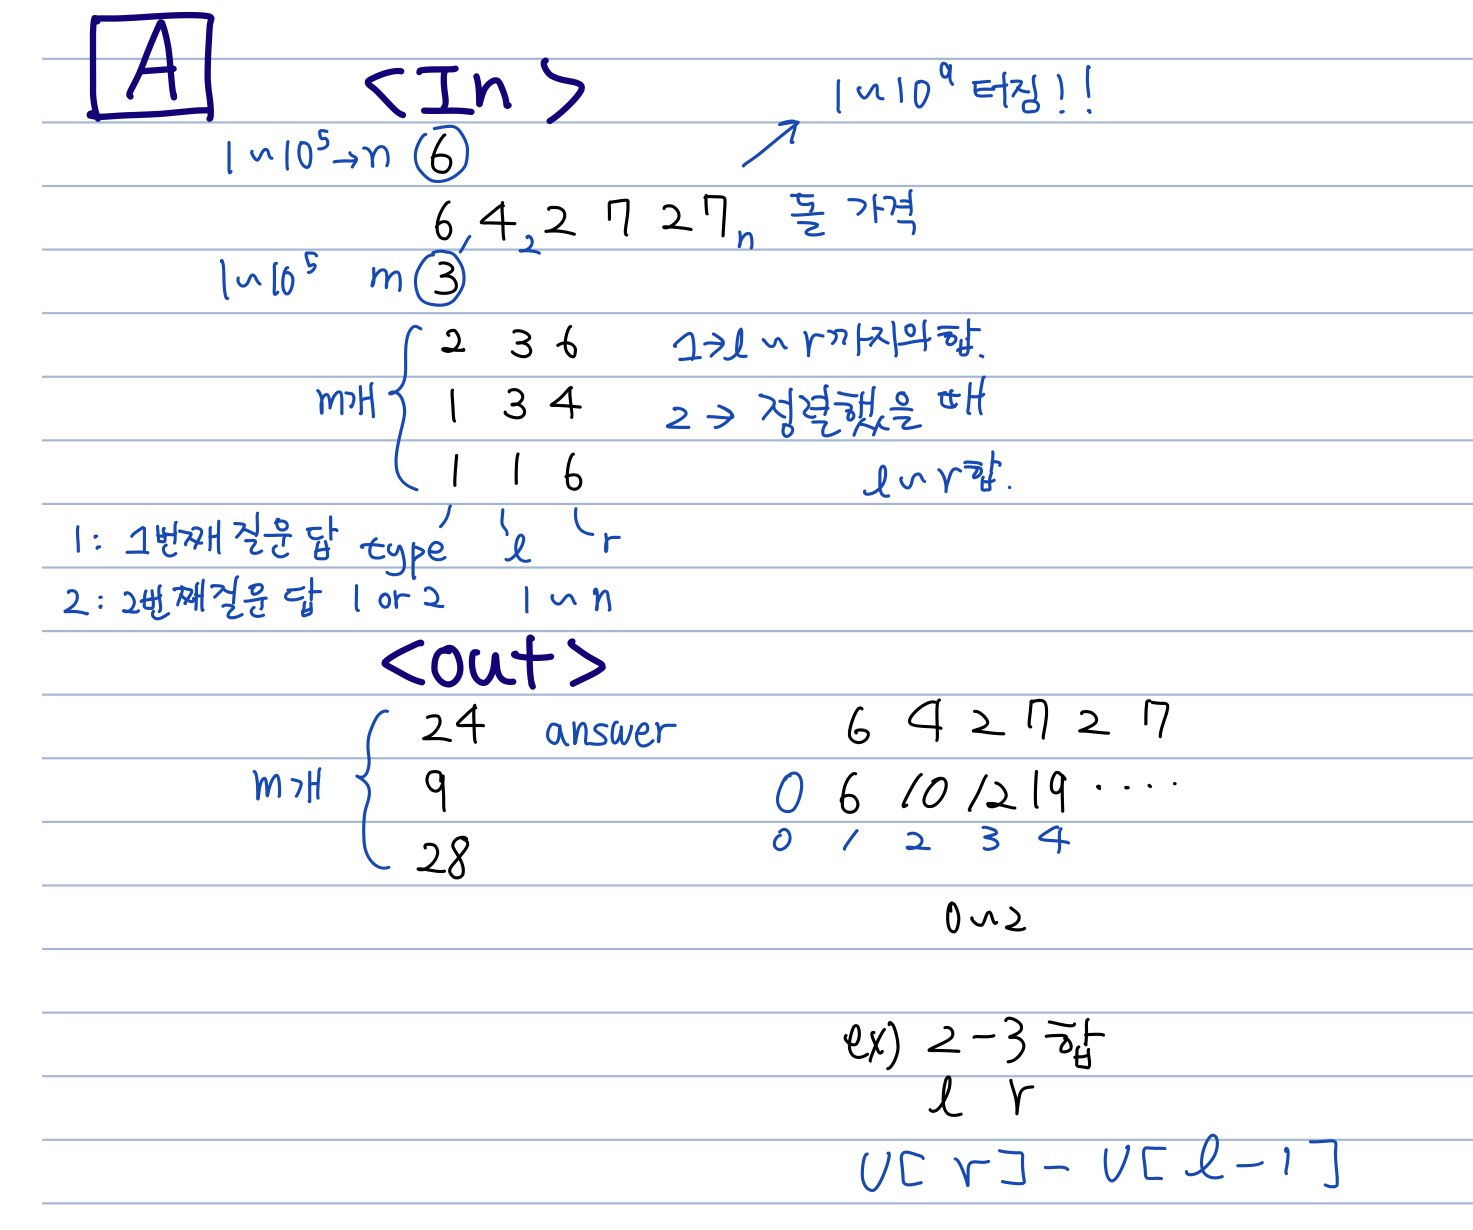 A
<In>
1~10⁹ 터짐!!
1~10⁵→n 6
6 4 2 7 2 7 돌 가격
1 2 n
1~10⁵ m 3
2 3 6 1→l~r까지의 합.
m개 1 3 4 2→ 정렬했을 때
1 1 6 l~r합.
1: 1번째 질문 답 type l r
2: 2번째 질문 답 1 or 2 1~n
<out>
24 answer 6 4 2 7 2 7
m개 9 0 6 10 12 19 ·····
0 1 2 3 4
28
0~2
ex) 2-3 합
l r
v[r]-v[l-1]